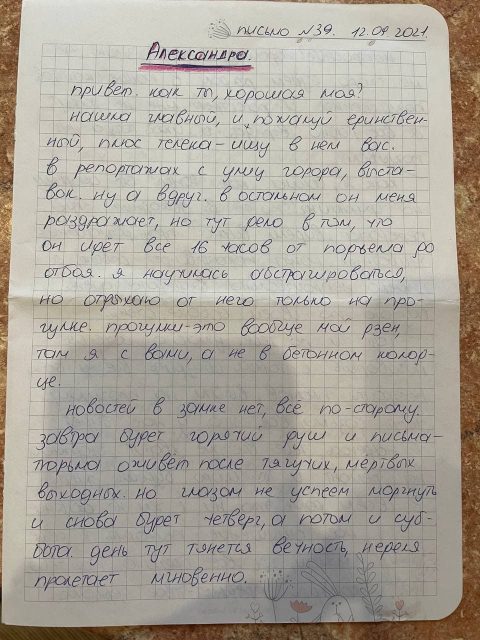 письмо №39. 12.09.2021
Александра.
привет. как ты, хорошая моя?
нашла главный, и, пожалуй единствен-
ный, плюс телека-ищу в нем вас.
в репортажах с улиц города, выста-
вок. ну а вдруг. в остальном он меня
раздражает, но тут дело в том, что
он идёт все 16 часов от подъема до
отбоя. я научилась абстрагироваться,
но отдыхаю от него только на про-
гулке. прогулки-это вообще мой дзен,
там я с вами, а не в бетонном колод-
це.
новостей в замке нет, всё по-старому.
завтра будет горячий душ и письма-
тюрьма оживёт после тягучих, мёртвых
выходных. но глазом не успеем моргнуть
и снова будет четверг, а потом и суб-
бота. день тут тянется вечность, неделя
пролетает мгновенно.